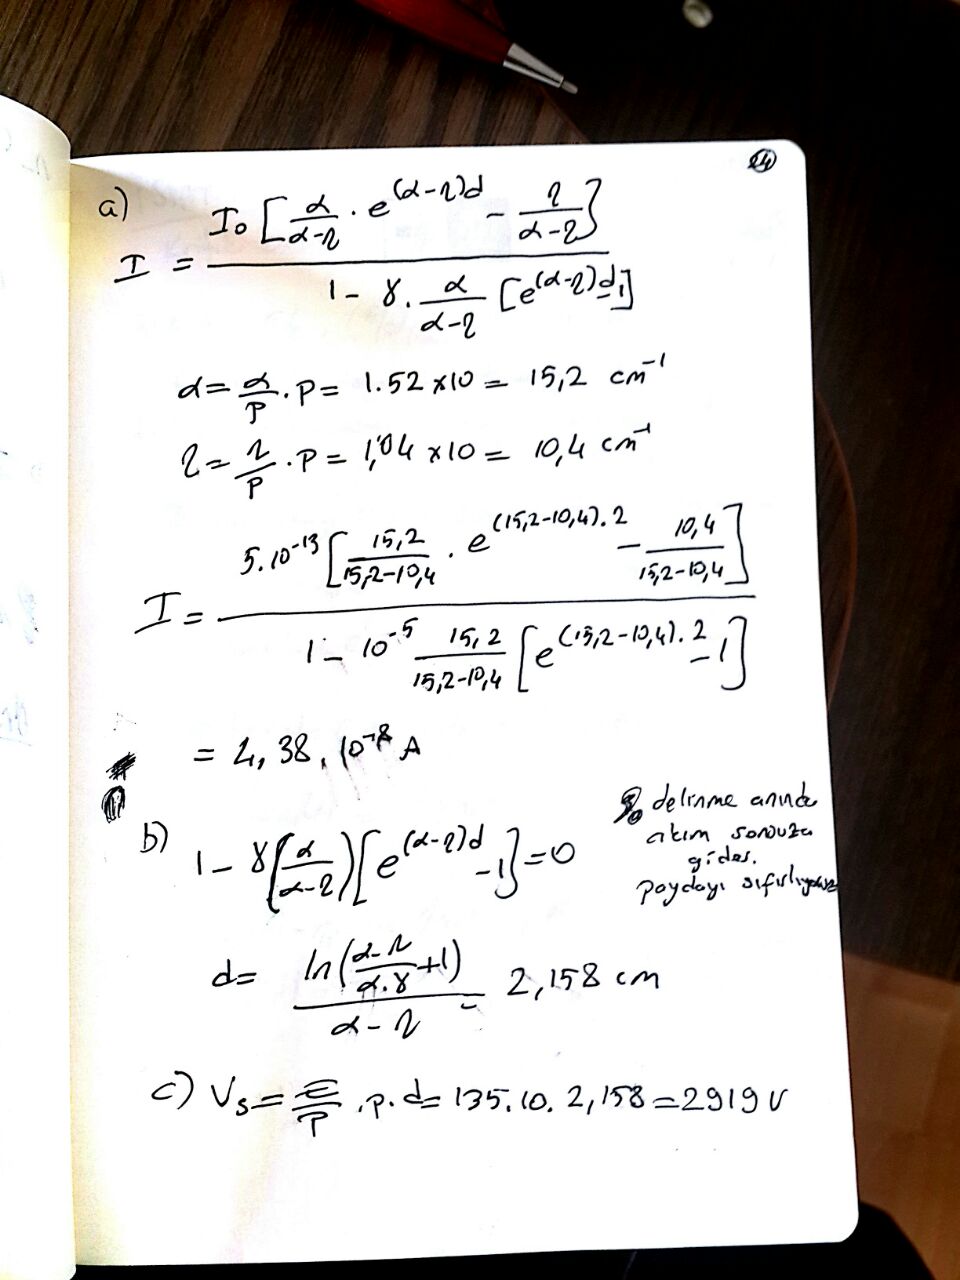 24
a) I = I₀ [α/(α-η) . e^((α-η)d) - η/(α-η)] / 1 - γ. α/(α-η) [e^((α-η)d) -1]
α = α/P . P = 1.52 x10 = 15,2 cm⁻¹
η = η/P . P = 1,04 x10 = 10,4 cm⁻¹
I = 5.10⁻¹³ [15,2/(15,2-10,4) . e^((15,2-10,4).2) - 10,4/(15,2-10,4)] / 1 - 10⁻⁵ 15,2/(15,2-10,4) [e^((15,2-10,4).2) -1]
= 2,38. 10⁻⁸ A
delinme anında
akım sonsuza
gider.
paydayı sıfırlıyoruz
b) 1 - γ(α/(α-η)) [e^((α-η)d) -1] = 0
d = ln((α-η)/(α.γ) +1) / (α-η) = 2,158 cm
c) Vs = E/P .p.d = 135.10. 2,158 = 2919 V